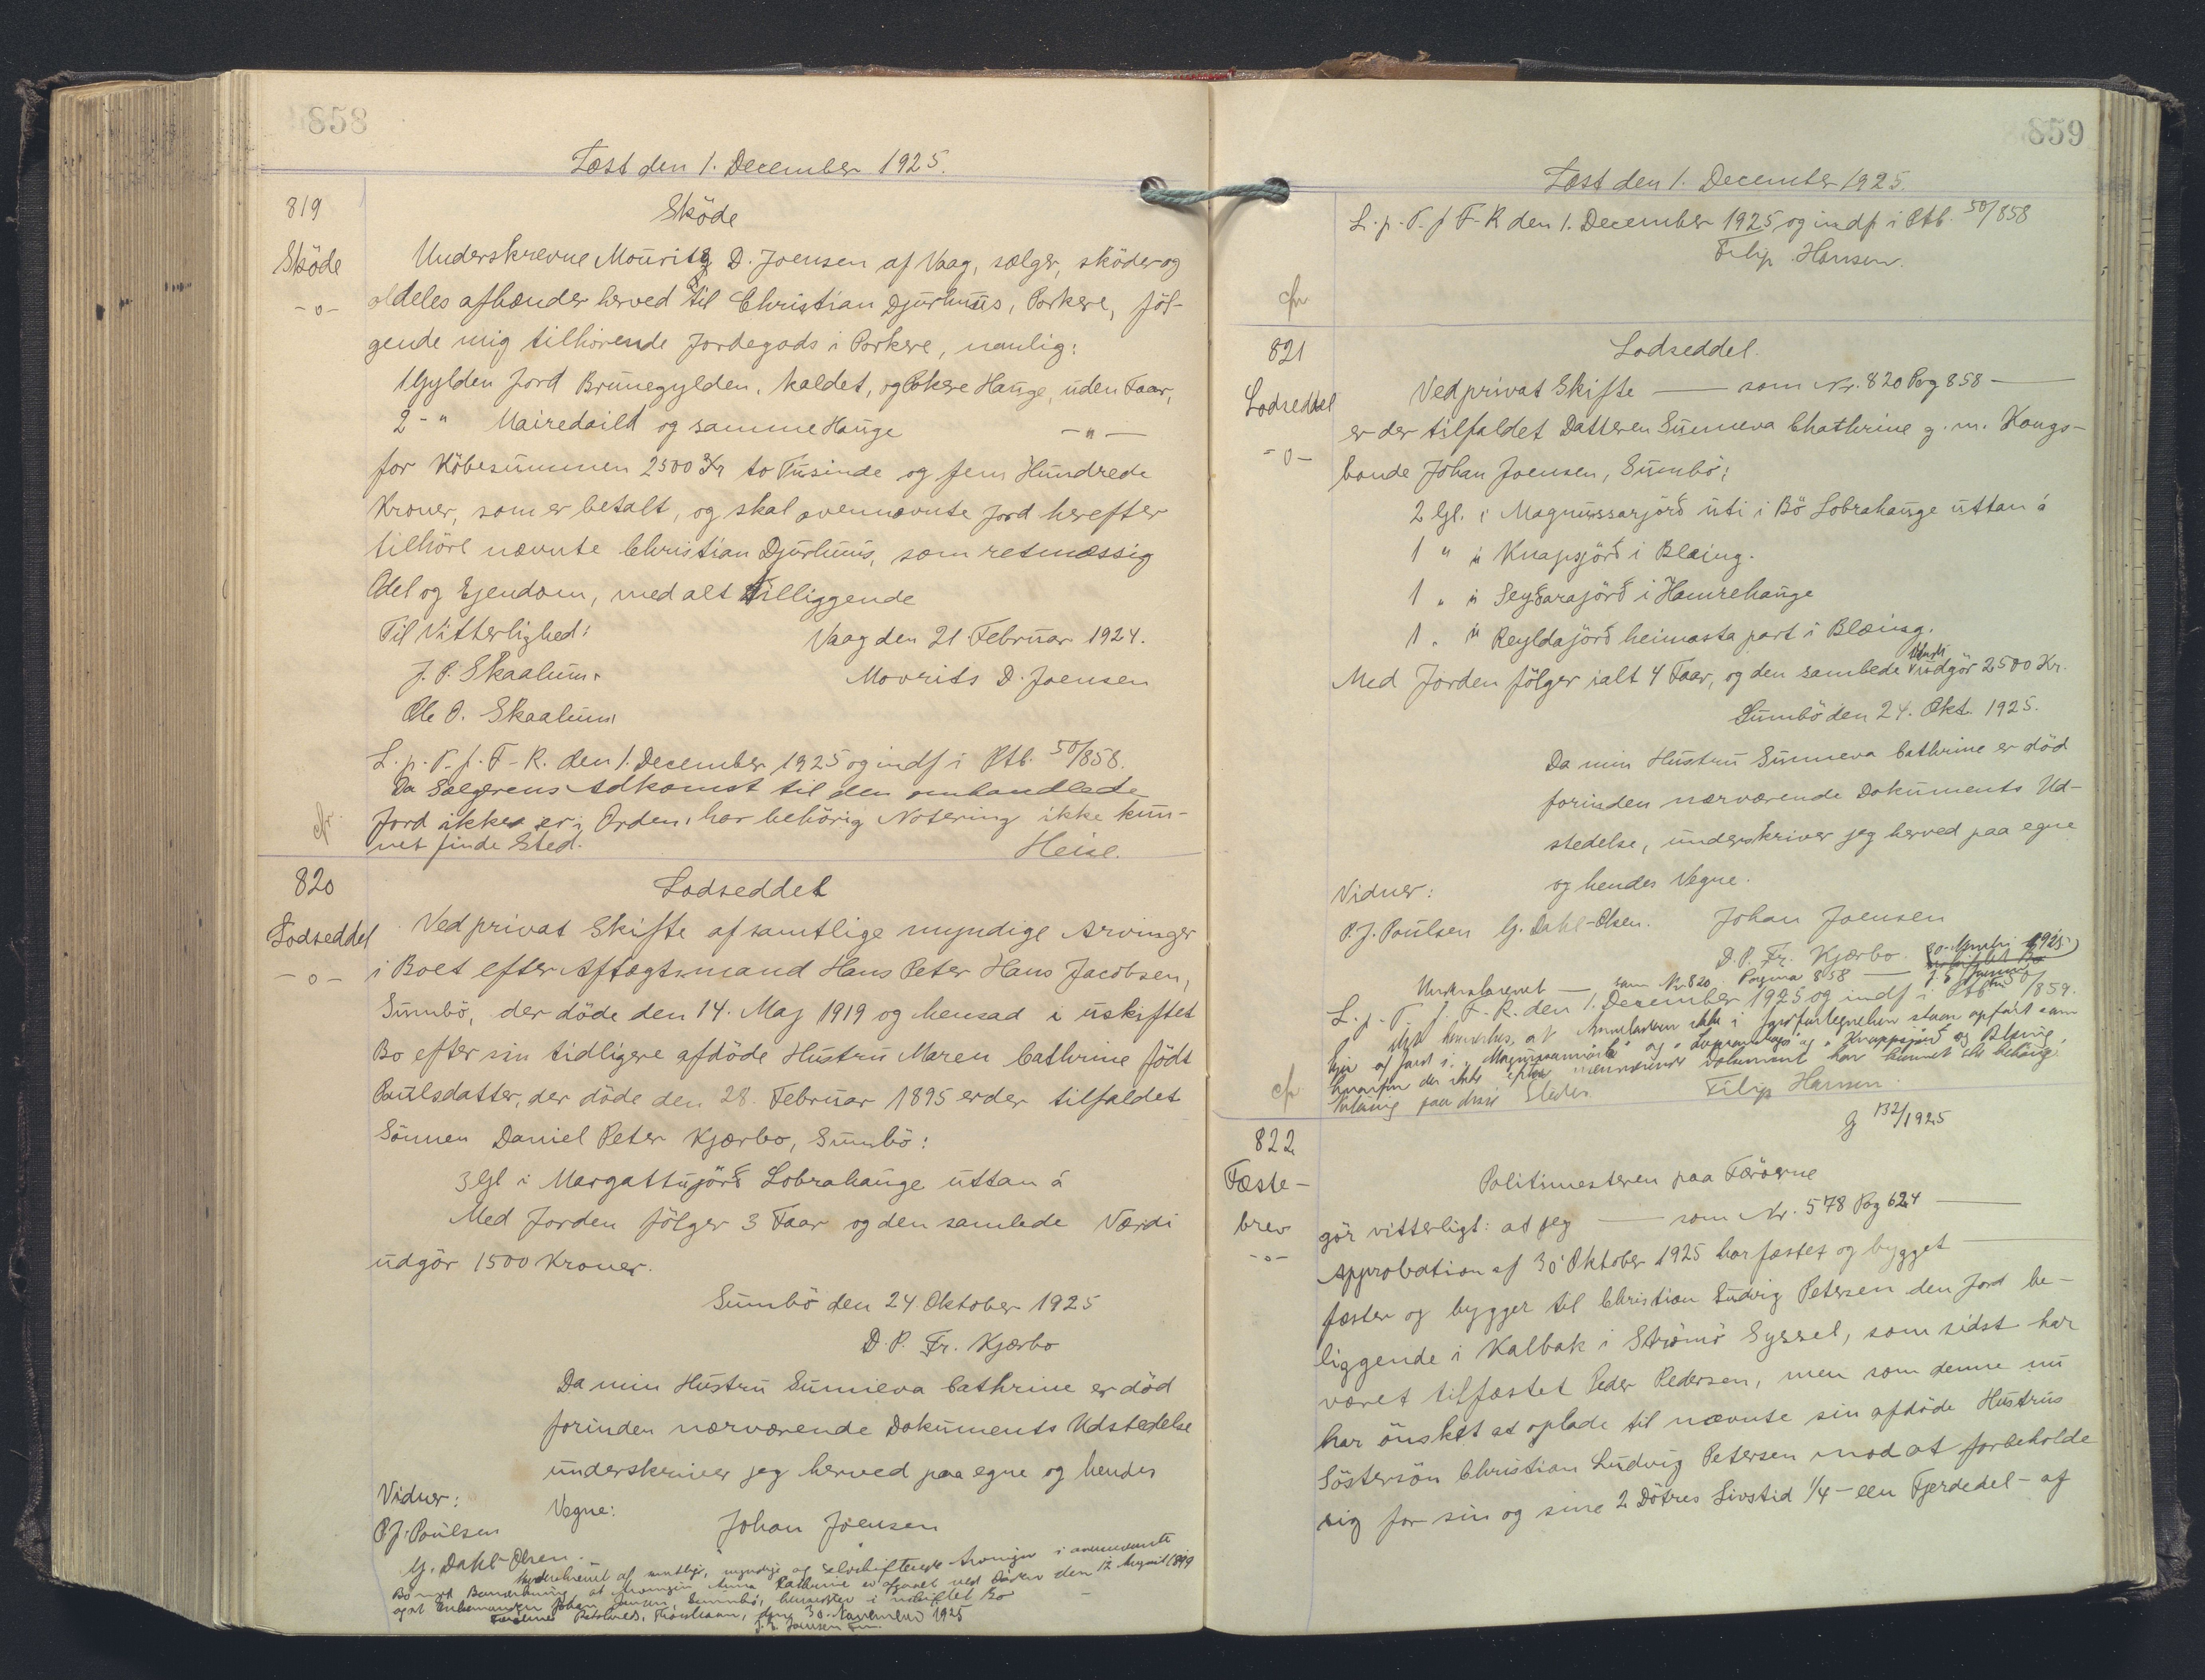 858
Læst den 1. December 1925.
819
Sköde
Sköde
-o-
Underskrevne Mouritz D. Joensen af Vaag, sælger, sköder og
aldeles afhænder herved til Christian Djurhuus, Porkere, föl-
gende mig tilhörende Jordegods i Porkere, nemlig:
1 Gylden Jord Brunegylden, kaldet, og Pokere Hauge, uden Faar,
2 - " Mairedailt og samme Hauge - " -
for Köbesummen 2500 Kr to Tusinde og fem Hundrede
Kroner, som er betalt, og skal ovennævnte Jord herefter
tilhöre nævnte Christian Djurhuus, som retmæssig
Odel og Ejendom, med alt Tilliggende
Til Vitterlighed: Vaag den 21 Februar 1924.
J. P. Skaalum. Movrits D. Joensen
Ole O. Skaalum
L. p. T. f. F-R. den 1. December 1925 og indf i Ptb. 50/858.
Da Sælgerens Adkomst til den omhandlede
Jord ikke er i Orden, har behörig Notering ikke kun-
net finde Sted. Heise.
cfr.
820
Lodseddel
Lodseddel
-o-
Ved privat Skifte af samtlige myndige Arvinger
i Boet efter Aftægtsmand Hans Peter Hans Jacobsen,
Sumbö, der döde den 14. Maj 1919 og hensad i uskiftet
Bo efter sin tidligere afdöde Hustru Maren Cathrine födt
Poulsdatter, der döde den 28. Februar 1895 er der tilfaldet
Sönnen Daniel Peter Kjærbo, Sumbö:
3 Gl i Margattujörð Lobrahauge uttan á
Med Jorden fölger 3 Faar og den samlede Værdi
udgör 1500 Kroner.
Sumbö den 24 Oktober 1925
D. P. Fr. Kjærbo
Da min Hustru Sunneva Cathrine er död
forinden nærværende Dokuments Udstedelse
underskriver jeg herved paa egne og hendes
Vidner: Vegne:
P. J. Poulsen Johan Joensen
G. Dahl-Olsen.
Underskrevet af samtlige, myndige og selvskiftende Arvinger i ovennævnte
Bo med Bemærkning, at Arvingen Anna Kathrine er afgaaet ved Döden den 12 August 1919
og at Enkemanden Johan Joensen, Sumbö, hensidder i uskiftet Bo
Færöernes Retskreds, Thorshavn, den 30. November 1925
J. S. Joensen fm.
859
Læst den 1. December 1925.
L. p. T. f F-R den 1. December 1925 og indf i Ptb. 50/858
Filip Hansen.
cfr
821
Lodseddel.
Lodseddel
-o-
Ved privat Skifte — som Nr. 820 Pag 858 —
er der tilfaldet Datteren Sunneva Chathrine g. m. Kongs-
bonde Johan Joensen, Sumbö:
2 Gl. i Magnussarjörð úti i Bö Lobrahauge uttan á
1 " " Knapsjörð i Blaing.
1 " " Seyðarajörð i Hamrehauge
1 " " Reyldajörð heimasta part i Blæing.
Med Jorden fölger ialt 4 Faar, og den samlede Værdi udgör 2500 Kr.
Sumbö den 24. Okt. 1925.
Da min Hustru Sunneva Cathrine er död
forinden nærværende Dokuments Ud-
stedelse, underskriver jeg herved paa egne
Vidner: og hendes Vegne.
P. J. Poulsen G. Dahl-Olsen. Johan Joensen
D. P. Fr. Kjærbo.
Underskrevet — som Nr 820 Pagina 858 — 30-November 1925
L. p. T. f. F-R. den 1. December 1925 og indf i Ptb 50/859.
ikke i Jordfortegnelsen staar opfört som
Ejer af Jord i "Magnussarjörð" og "Lobrahauge" og "Knappsjörð" og Blaing,
hvorfor der ikke efter nærværende Dokument har kunnet ske behörig
Notering paa disse Steder. Filip Hansen.
cfr
G 132/1925
822
Fæste-
brev
-o-
Politimesteren paa Færöerne
gör vitterligt: at jeg — som Nr. 578 Pag 624 —
Approbation af 30' Oktober 1925 har fæstet og bygget —
fæster og bygger til Christian Ludvig Petersen den Jord be-
liggende i Kalbak i Strömö Syssel, som sidst har
været tilfæstet Peder Pedersen, men som denne nu
har önsket at oplade til nævnte sin afdöde Hustrus
Söstersön Christian Ludvig Petersen mod at forbeholde
sig for sin og sine 2 Dötres Livstid 1/4 - een Fjerdedel - af